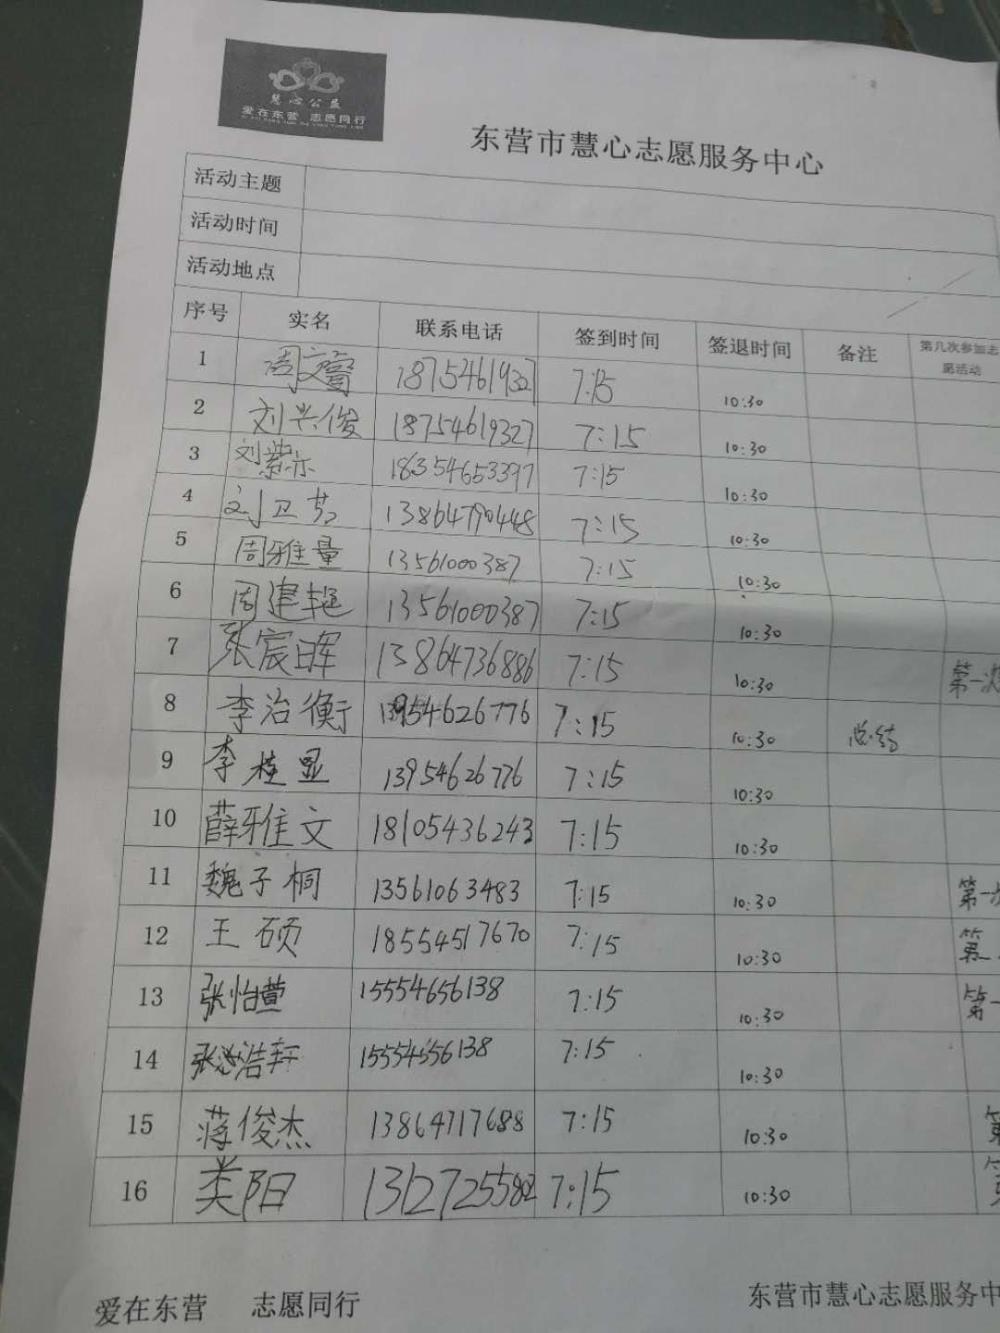 慧心公益
爱在东营 志愿同行
东营市慧心志愿服务中心
活动主题
活动时间
活动地点
序号 实名 联系电话 签到时间 签退时间 备注 第几次参加志愿活动
1 周文睿 18754619327 7:15 10:30
2 刘兴俊 18754619327 7:15 10:30
3 刘紫乐 18354653397 7:15 10:30
4 刘卫芳 13864790448 7:15 10:30
5 周雅量 13561000387 7:15 10:30
6 周建 13561000387 7:15 10:30
7 张宸晖 13864736886 7:15 10:30 第一次
8 李治衡 13954626776 7:15 10:30 总结
9 李桂显 13954626776 7:15 10:30
10 薛雅文 18105436243 7:15 10:30
11 魏子桐 13561063483 7:15 10:30 第一次
12 王硕 18554517670 7:15 10:30 第二
13 张怡萱 15554656138 7:15 10:30 第一
14 张浩轩 15554656138 7:15 10:30
15 蒋俊杰 13864717688 7:15 10:30
16 类阳 7:15 10:30
爱在东营 志愿同行 东营市慧心志愿服务中